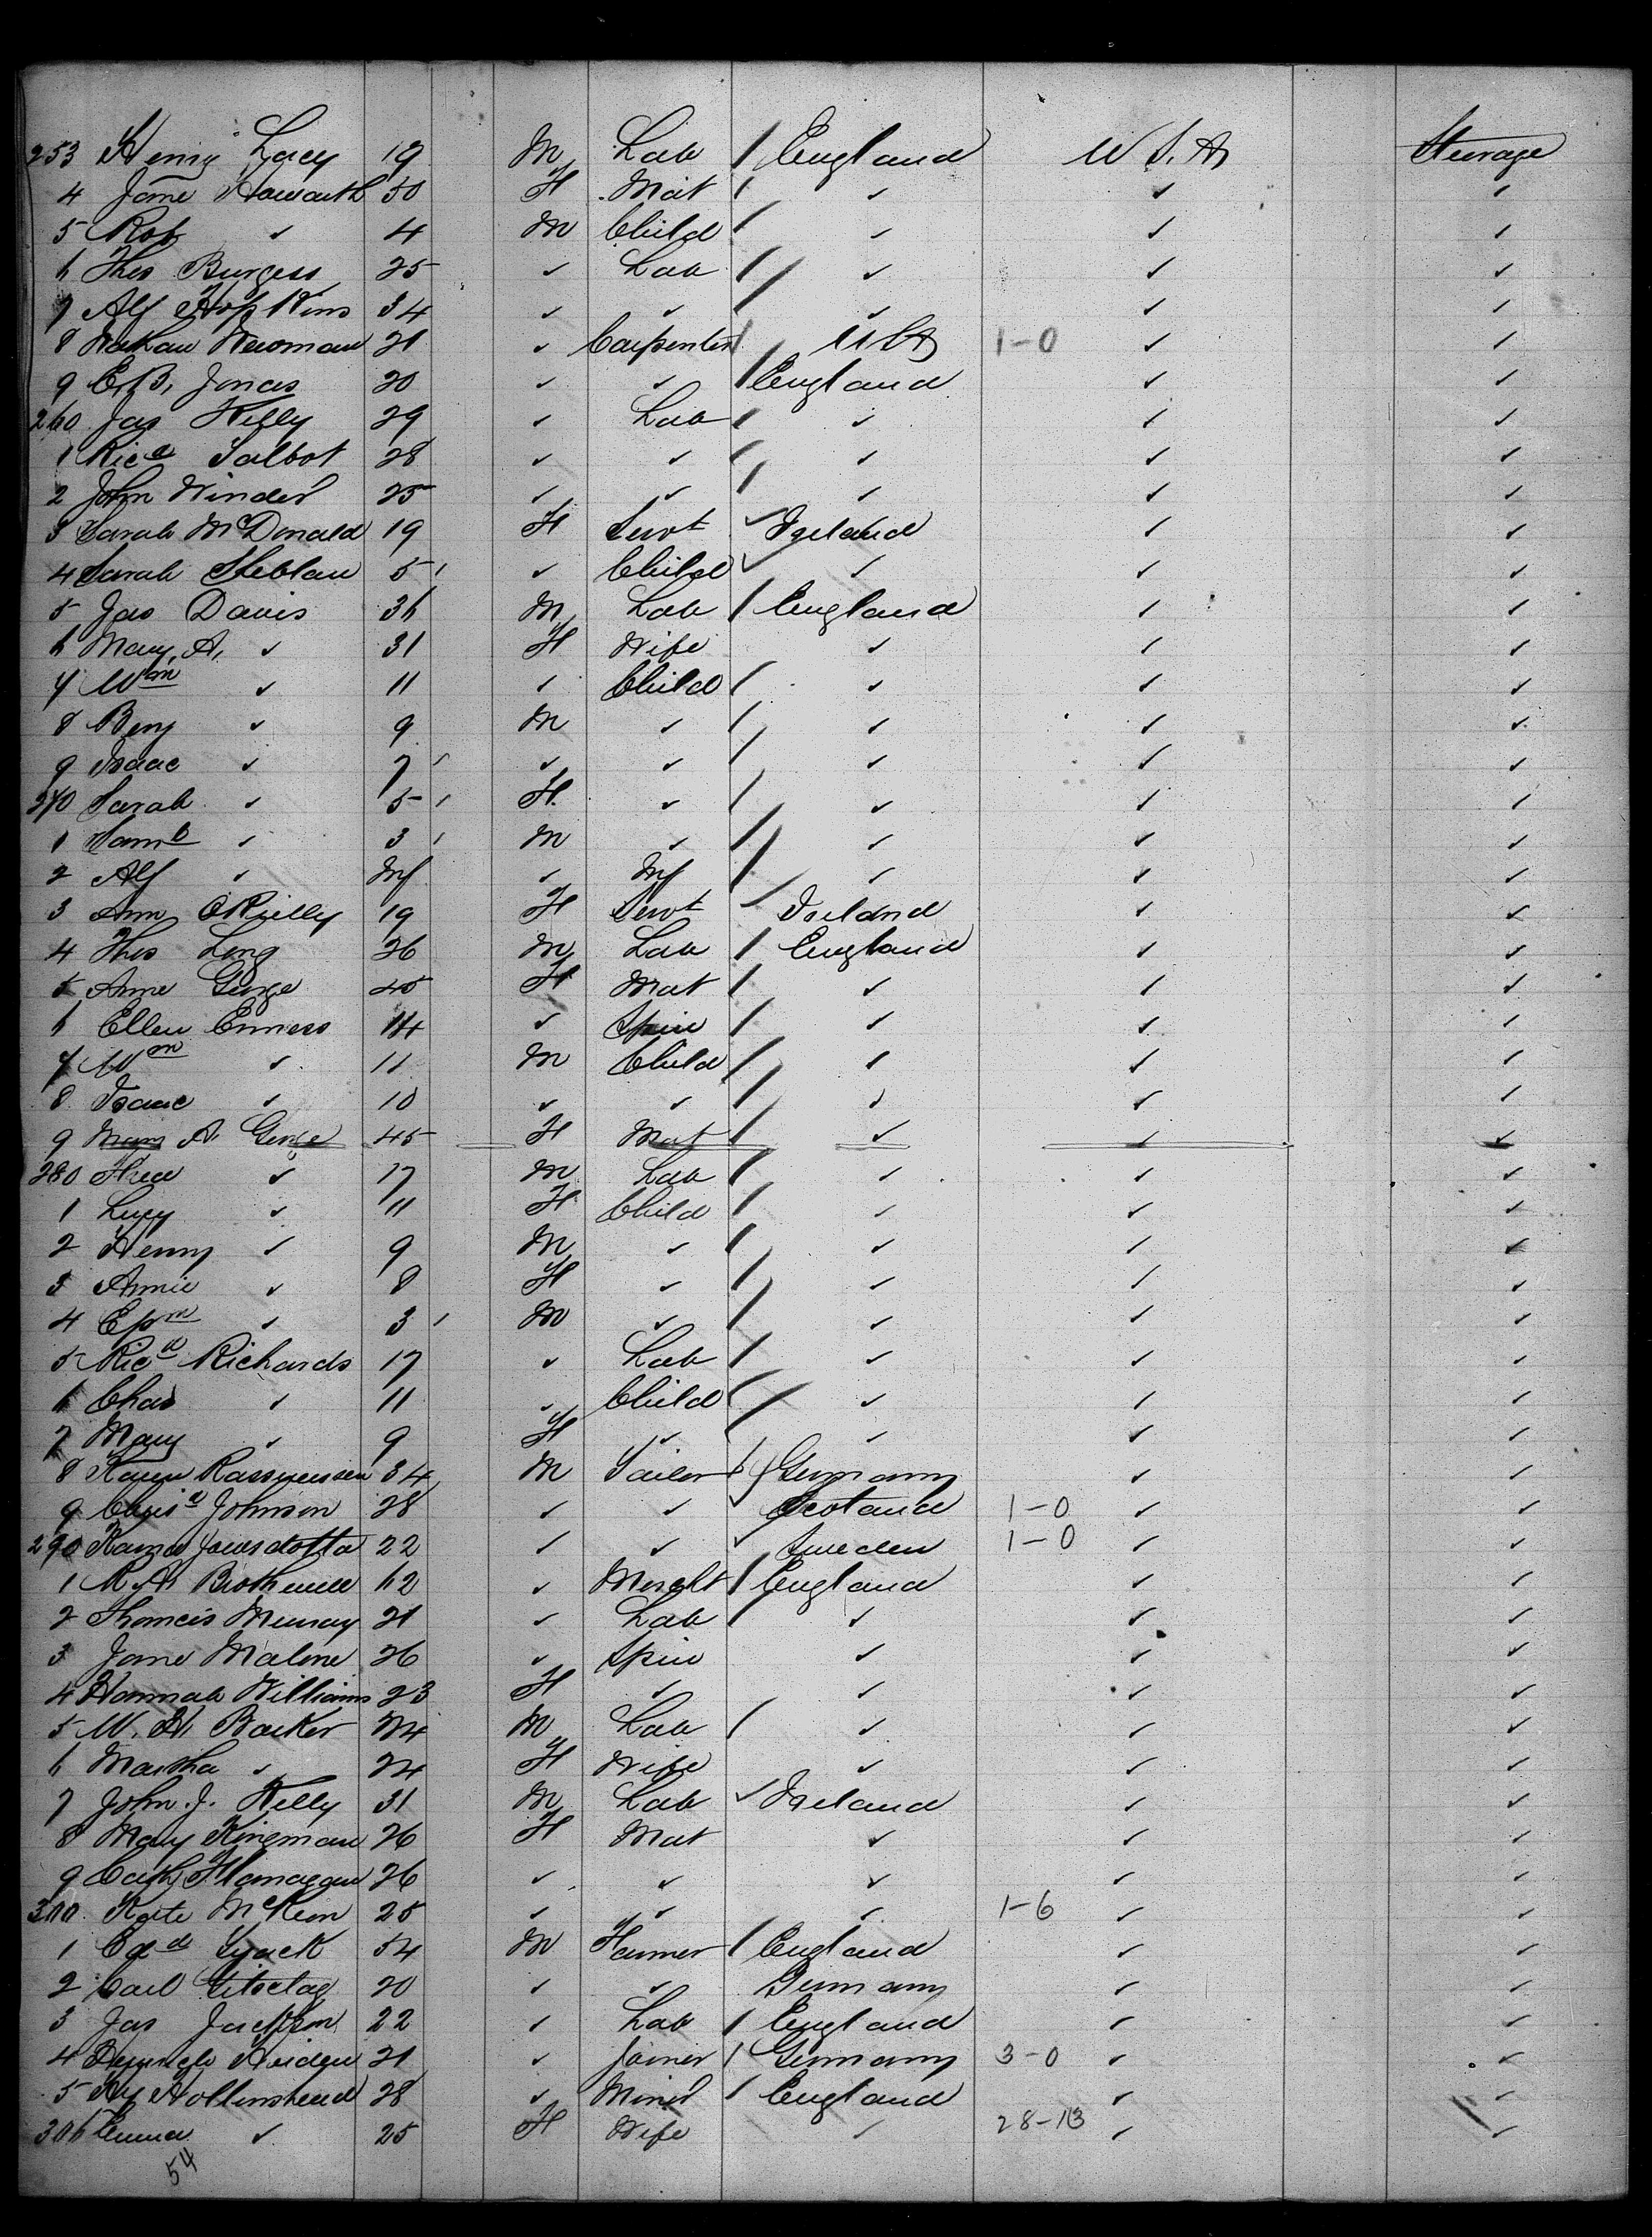 253 Henry Lacy 19 M Lab / England U S. A Steerage
4 Jane Howarth 50 F Mat / ✓ ✓ ✓
5 Rob ✓ 4 M Child / ✓ ✓ ✓
6 Thos Burgess 25 ✓ Lab / ✓ ✓ ✓
7 Alf Hopkins 34 ✓ ✓ / ✓ ✓ ✓
8 Nathan Newman 21 ✓ Carpenter / USA 1-0 ✓ ✓
9 E, B, Jones 20 ✓ ✓ / England ✓ ✓
260 Jas Kelly 29 ✓ Lab / ✓ ✓ ✓
1 Ricd Talbot 28 ✓ ✓ / ✓ ✓ ✓
2 John Winder 25 ✓ ✓ / ✓ ✓ ✓
3 Sarah McDonald 19 F Servt ✓ Ireland ✓ ✓
4 Sarah 5 ✓ Child ✓ ✓ ✓ ✓
5 Jas Davis 36 M Lab / England ✓ ✓
6 Mary, A, ✓ 31 F Wife ✓ ✓ ✓
7 Wm ✓ 11 ✓ Child / ✓ ✓ ✓
8 Benj ✓ 9 M ✓ / ✓ ✓ ✓
9 Isaac ✓ 7 ✓ ✓ / ✓ ✓ ✓
270 Sarah ✓ 5 F. ✓ / ✓ ✓ ✓
1 Saml ✓ 3 M ✓ / ✓ ✓ ✓
2 Alf ✓ Inf ✓ Inf / ✓ ✓ ✓
3 Ann O'Reilly 19 F Servt ✓ Ireland ✓ ✓
4 Thos Long 26 M Lab / England ✓ ✓
5 Anne George 45 F Mat / ✓ ✓ ✓
6 Ellen Enness 14 ✓ Spin / ✓ ✓ ✓
7 Wm ✓ 11 M Child / ✓ ✓ ✓
8 Isaac ✓ 10 ✓ ✓ / ✓ ✓ ✓
9 Mary A. George 45 F Mat / ✓ ✓ ✓
280 Fred ✓ 17 M Lab / ✓ ✓ ✓
1 Lucy ✓ 11 F Child / ✓ ✓ ✓
2 Henry ✓ 9 M ✓ / ✓ ✓ ✓
3 Annie ✓ 8 F ✓ / ✓ ✓ ✓
4 Epm ✓ 3 M ✓ / ✓ ✓ ✓
5 Ricd Richards 17 ✓ Lab / ✓ ✓ ✓
6 Chas ✓ 11 ✓ Child / ✓ ✓ ✓
7 Mary ✓ 9 F ✓ / ✓ ✓ ✓
8 Rasmussen 34 M Sailor / Germany ✓ ✓
9 Johnson 28 ✓ ✓ ✓ Scotland 1-0 ✓ ✓
290 22 ✓ ✓ ✓ Sweden 1-0 ✓ ✓
1 R. A. Brothwell 62 ✓ Mercht / England ✓ ✓
2 Thomas Murray 21 ✓ Lab / ✓ ✓ ✓
3 Jane Malone 26 ✓ Spin ✓ ✓ ✓
4 Hannah Williams 23 F ✓ ✓ ✓ ✓
5 W. H. Barker 24 M Lab / ✓ ✓ ✓
6 Martha ✓ 24 F Wife ✓ ✓ ✓
7 John. J. Kelly 31 M Lab ✓ Ireland ✓ ✓
8 Mary Kingman 26 F Mat ✓ ✓ ✓
9 Cath Flanagan 26 ✓ ✓ ✓ ✓ ✓
300 Kate McKeon 25 ✓ ✓ ✓ 1-6 ✓ ✓
1 Edd 54 M Farmer / England ✓ ✓
2 Carl 20 ✓ ✓ Germany ✓ ✓
3 Jas Jackson 22 ✓ Lab / England ✓ ✓
4 21 ✓ Joiner / Germany 3-0 ✓ ✓
5 Hy Hollinshead 28 ✓ Miner / England ✓ ✓
306 Emma ✓ 25 F Wife ✓ 28-113 ✓ ✓
54